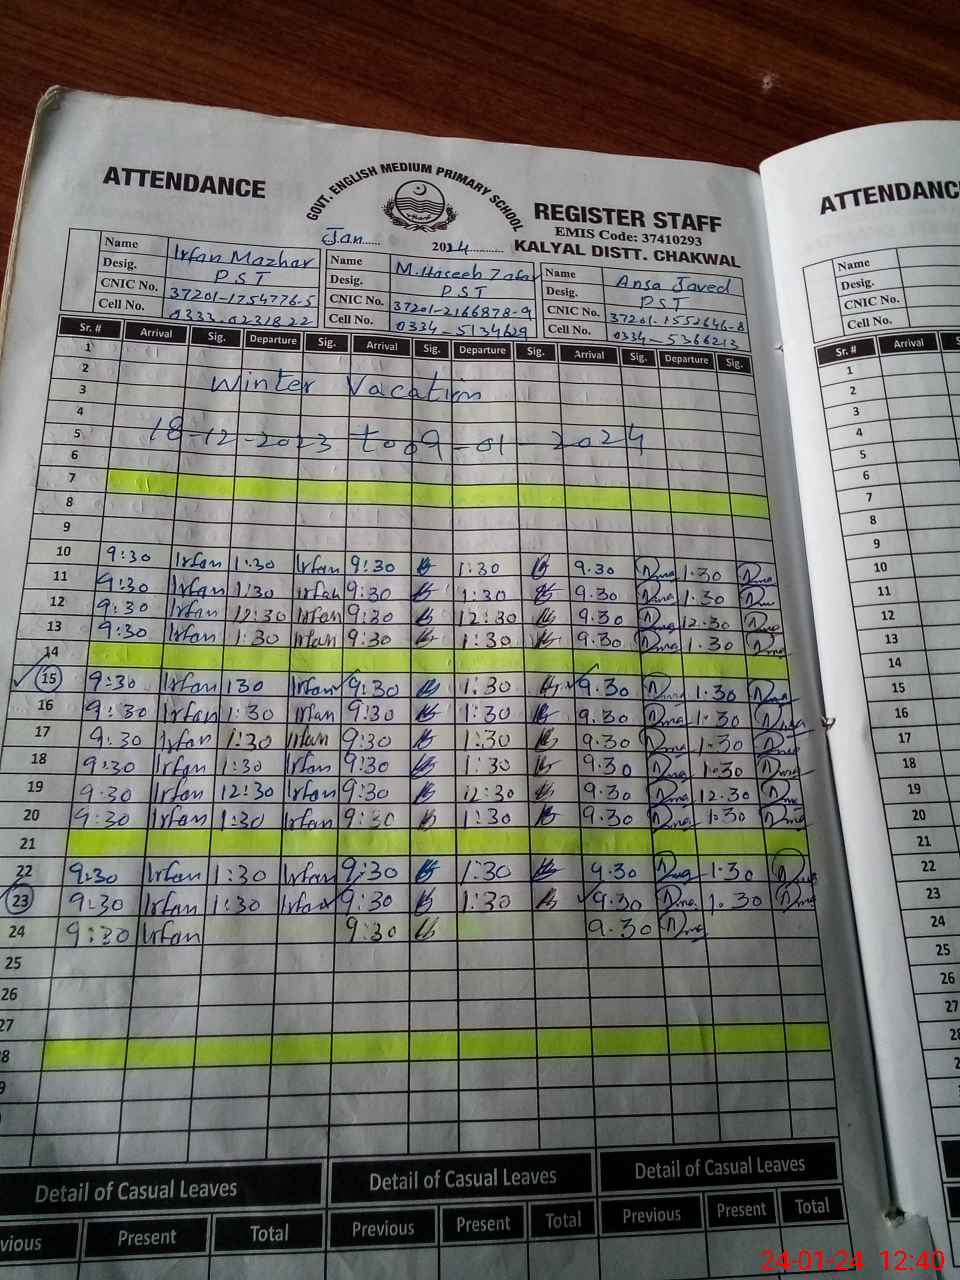 ATTENDANCE
GOVT. ENGLISH MEDIUM PRIMARY SCHOOL
REGISTER STAFF
EMIS Code: 37410293
Jan..... 2024............ KALYAL DISTT. CHAKWAL
Name Irfan Mazhar Name M. Haseeb Zafar Name Ansa Javed
Desig. PST Desig. PST Desig. PST
CNIC No. 37201-1754776-5 CNIC No. 37201-2166878-9 CNIC No. 37201-1552646-8
Cell No. 0333-0231822 Cell No. 0334-5134629 Cell No. 0334-5366213
Sr. # Arrival Sig. Departure Sig. Arrival Sig. Departure Sig. Arrival Sig. Departure Sig.
1
2
3 Winter Vacation
4
5 18-12-2023 to 09-01-2024
6
7
8
9
10 9:30 Irfan 1:30 Irfan 9:30 1:30 9.30 1.30
11 9:30 Irfan 1:30 Irfan 9:30 1:30 9.30 1.30
12 9:30 Irfan 12:30 Irfan 9:30 12:30 9.30 12.30
13 9:30 Irfan 1:30 Irfan 9:30 1:30 9.30 1.30
14
15 9:30 Irfan 130 Irfan 9:30 1:30 9.30 1.30
16 9:30 Irfan 1:30 Irfan 9:30 1:30 9.30 1.30
17 9:30 Irfan 1:30 Irfan 9:30 1:30 9.30 1.30
18 9:30 Irfan 1:30 Irfan 9:30 1:30 9.30 1.30
19 9:30 Irfan 12:30 Irfan 9:30 12:30 9.30 12.30
20 9:30 Irfan 1:30 Irfan 9:30 1:30 9.30 1.30
21
22 9:30 Irfan 1:30 Irfan 9:30 1:30 9.30 1.30
23 9:30 Irfan 1:30 Irfan 9:30 1:30 9.30 1.30
24 9:30 Irfan 9:30 9.30
25
26
27
28
Detail of Casual Leaves Detail of Casual Leaves Detail of Casual Leaves
Present Total Previous Present Total Previous Present Total
ATTENDANC
Name
Desig.
CNIC No.
Cell No.
Sr. # Arrival
1
2
3
4
5
6
7
8
9
10
11
12
13
14
15
16
17
18
19
20
21
22
23
24
25
26
27
28
24-01-24 12:40